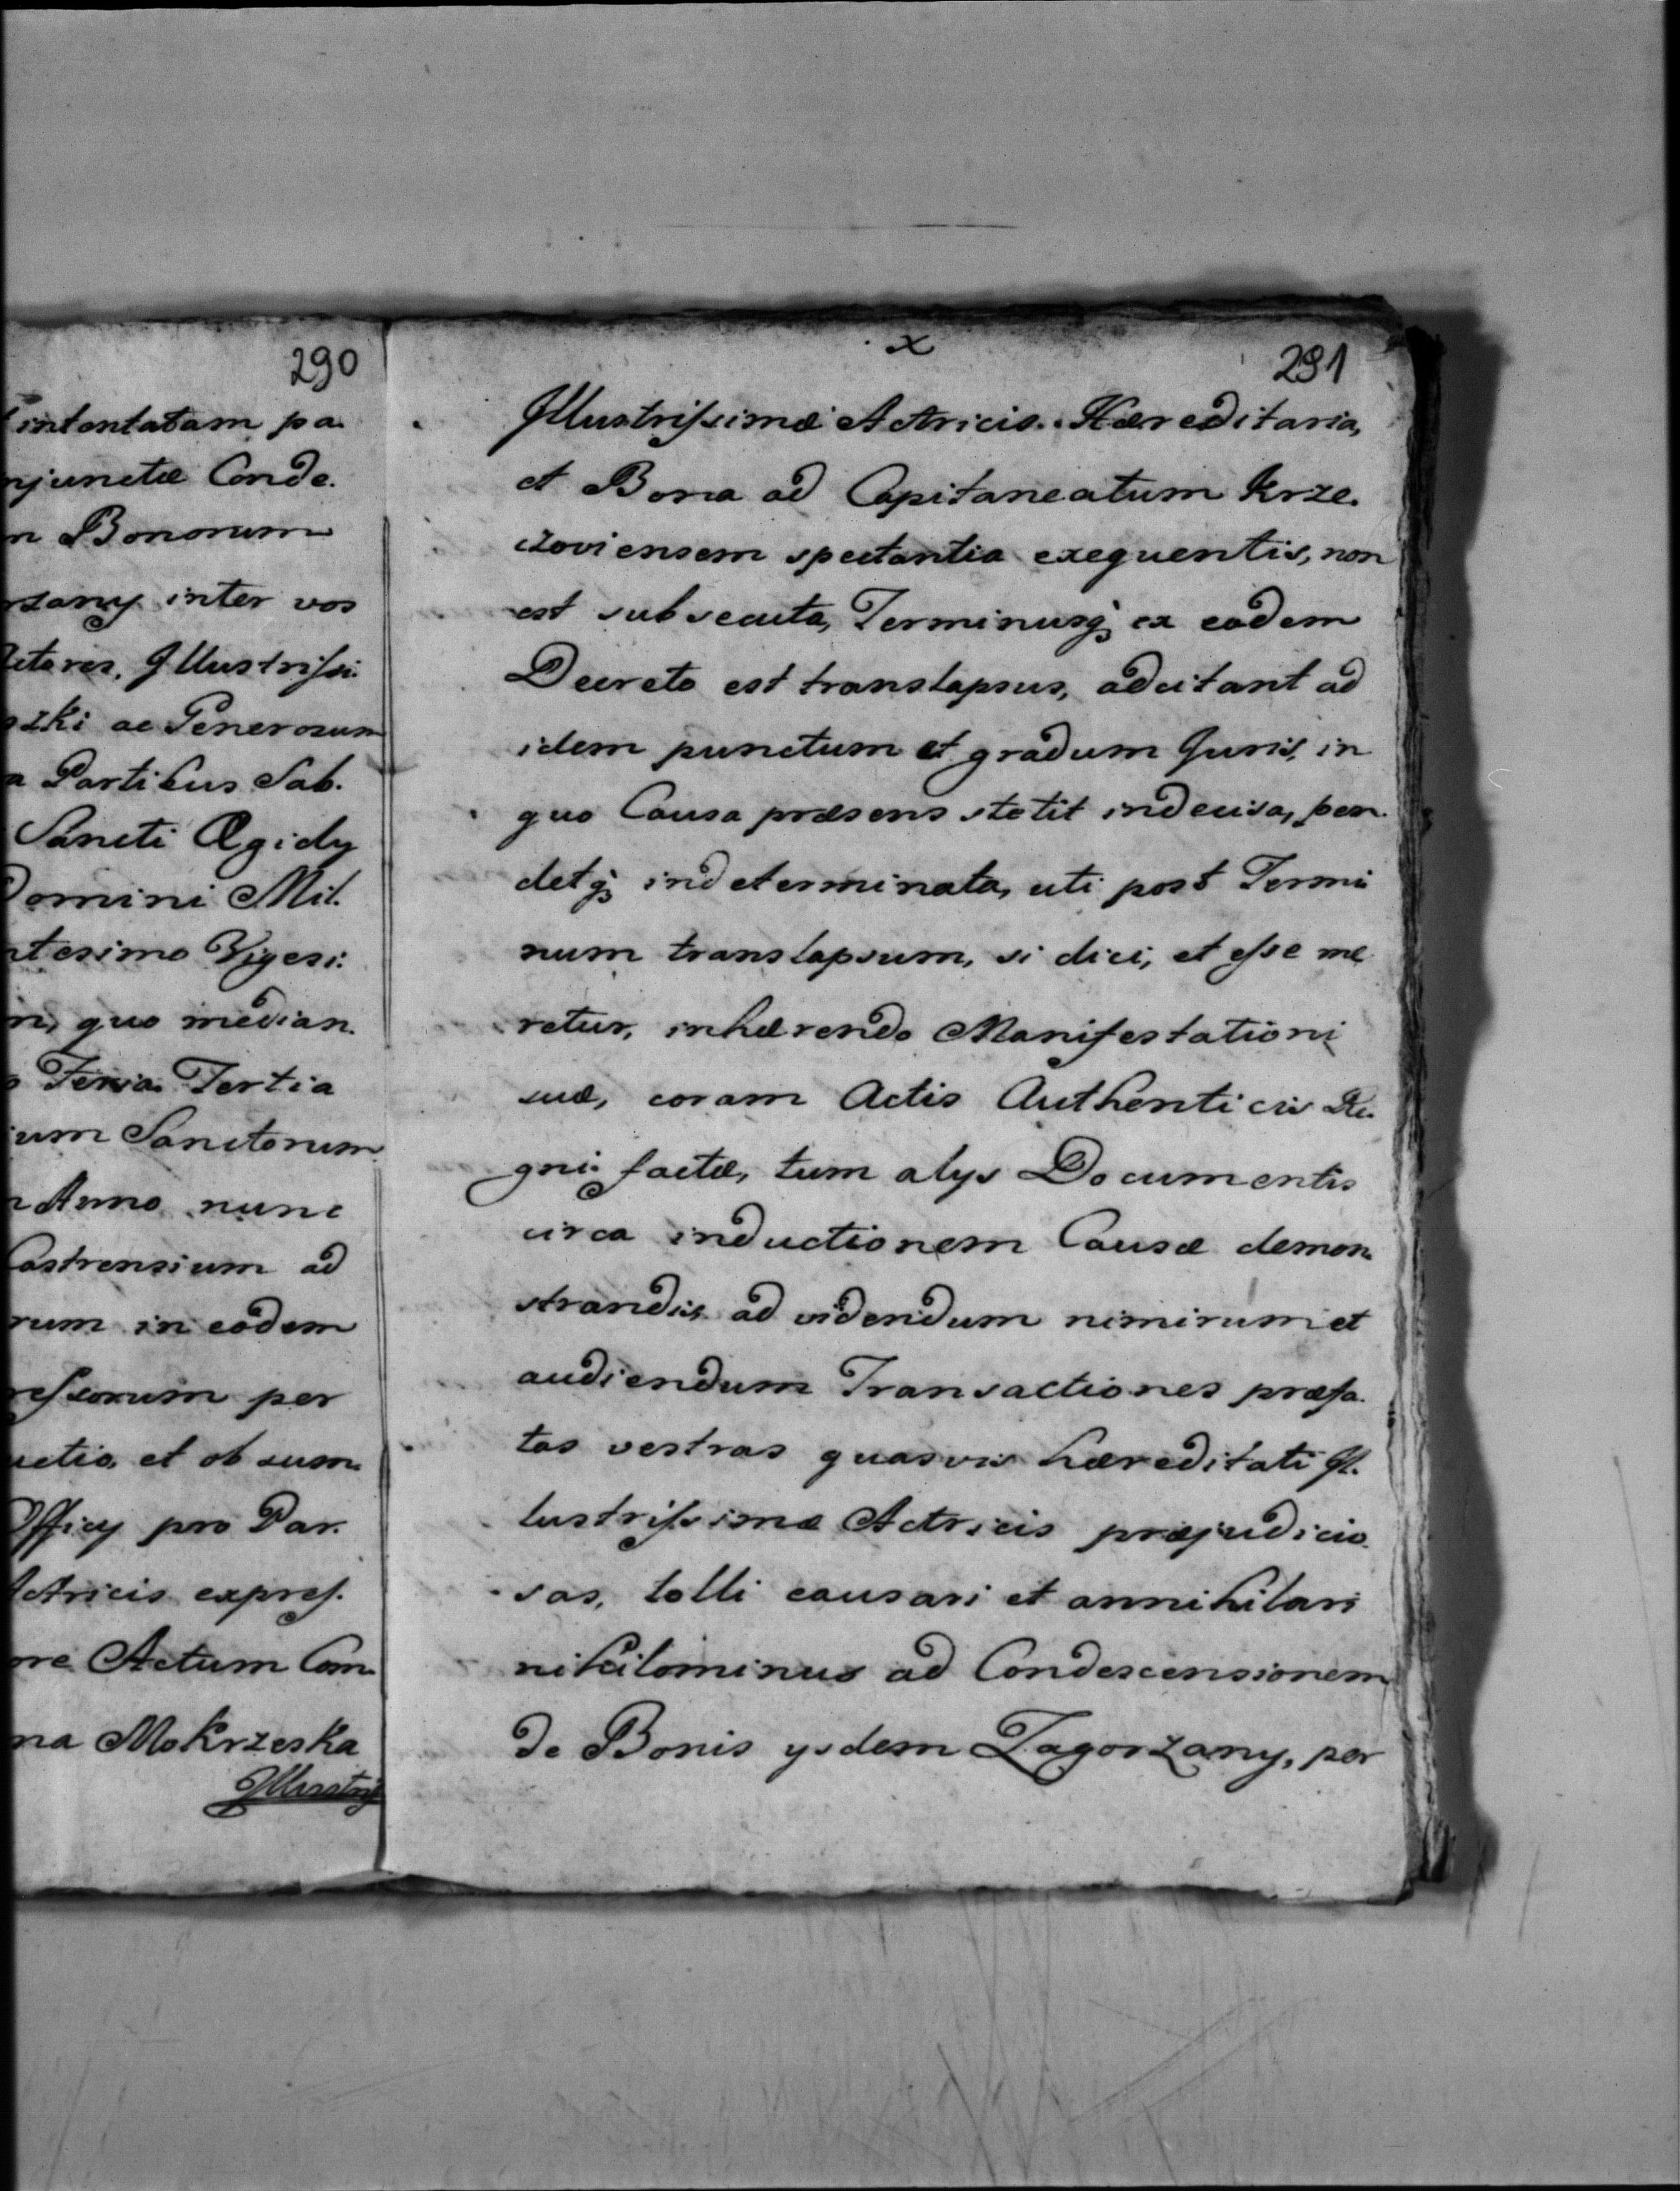 290
intentatam pa.
njunctæ Conde.
n Bonorum
rzany inter vos
Illustrissi.
zki ac Generosum
a Partibus Sab.
Sancti Ægidy
Domini Mil.
ntesimo Vigesi.
quo median.
Feria Tertia
um Sanctorum
Anno nunc
Castrensium ad
rum in eodem
ressorum per
uctio, et ob sum.
Officy pro Par.
Actricis expres.
re Actum Com.
na Mokrzeska
Illustriss
x
291
Illustrissimæ Actricis Hæreditaria,
et Bona ad Capitaneatum Krze.
czoviensem spectantia exequentis, non
est subsecuta, Terminusq; ex eodem
Decreto est translapsus, adcitant ad
idem punctum et gradum Juris, in
quo Causa præsens stetit indecisa, pen.
detq; indeterminata, uti post Termi
num translapsum, si dici, et esse me
retur, inhærendo Manifestationi
suæ, coram Actis Authenticis Re.
gni factæ, tum alys Documentis
circa inductionem Causæ demon.
strandis, ad videndum nimirum et
audiendum Transactiones præfa.
tas vestras quasvis hæreditati Il.
lustrissimæ Actricis præjudicio.
sas, tolli causari et annihilari
nihilominus ad Condescensionem
de Bonis ysdem Zagorzany, per